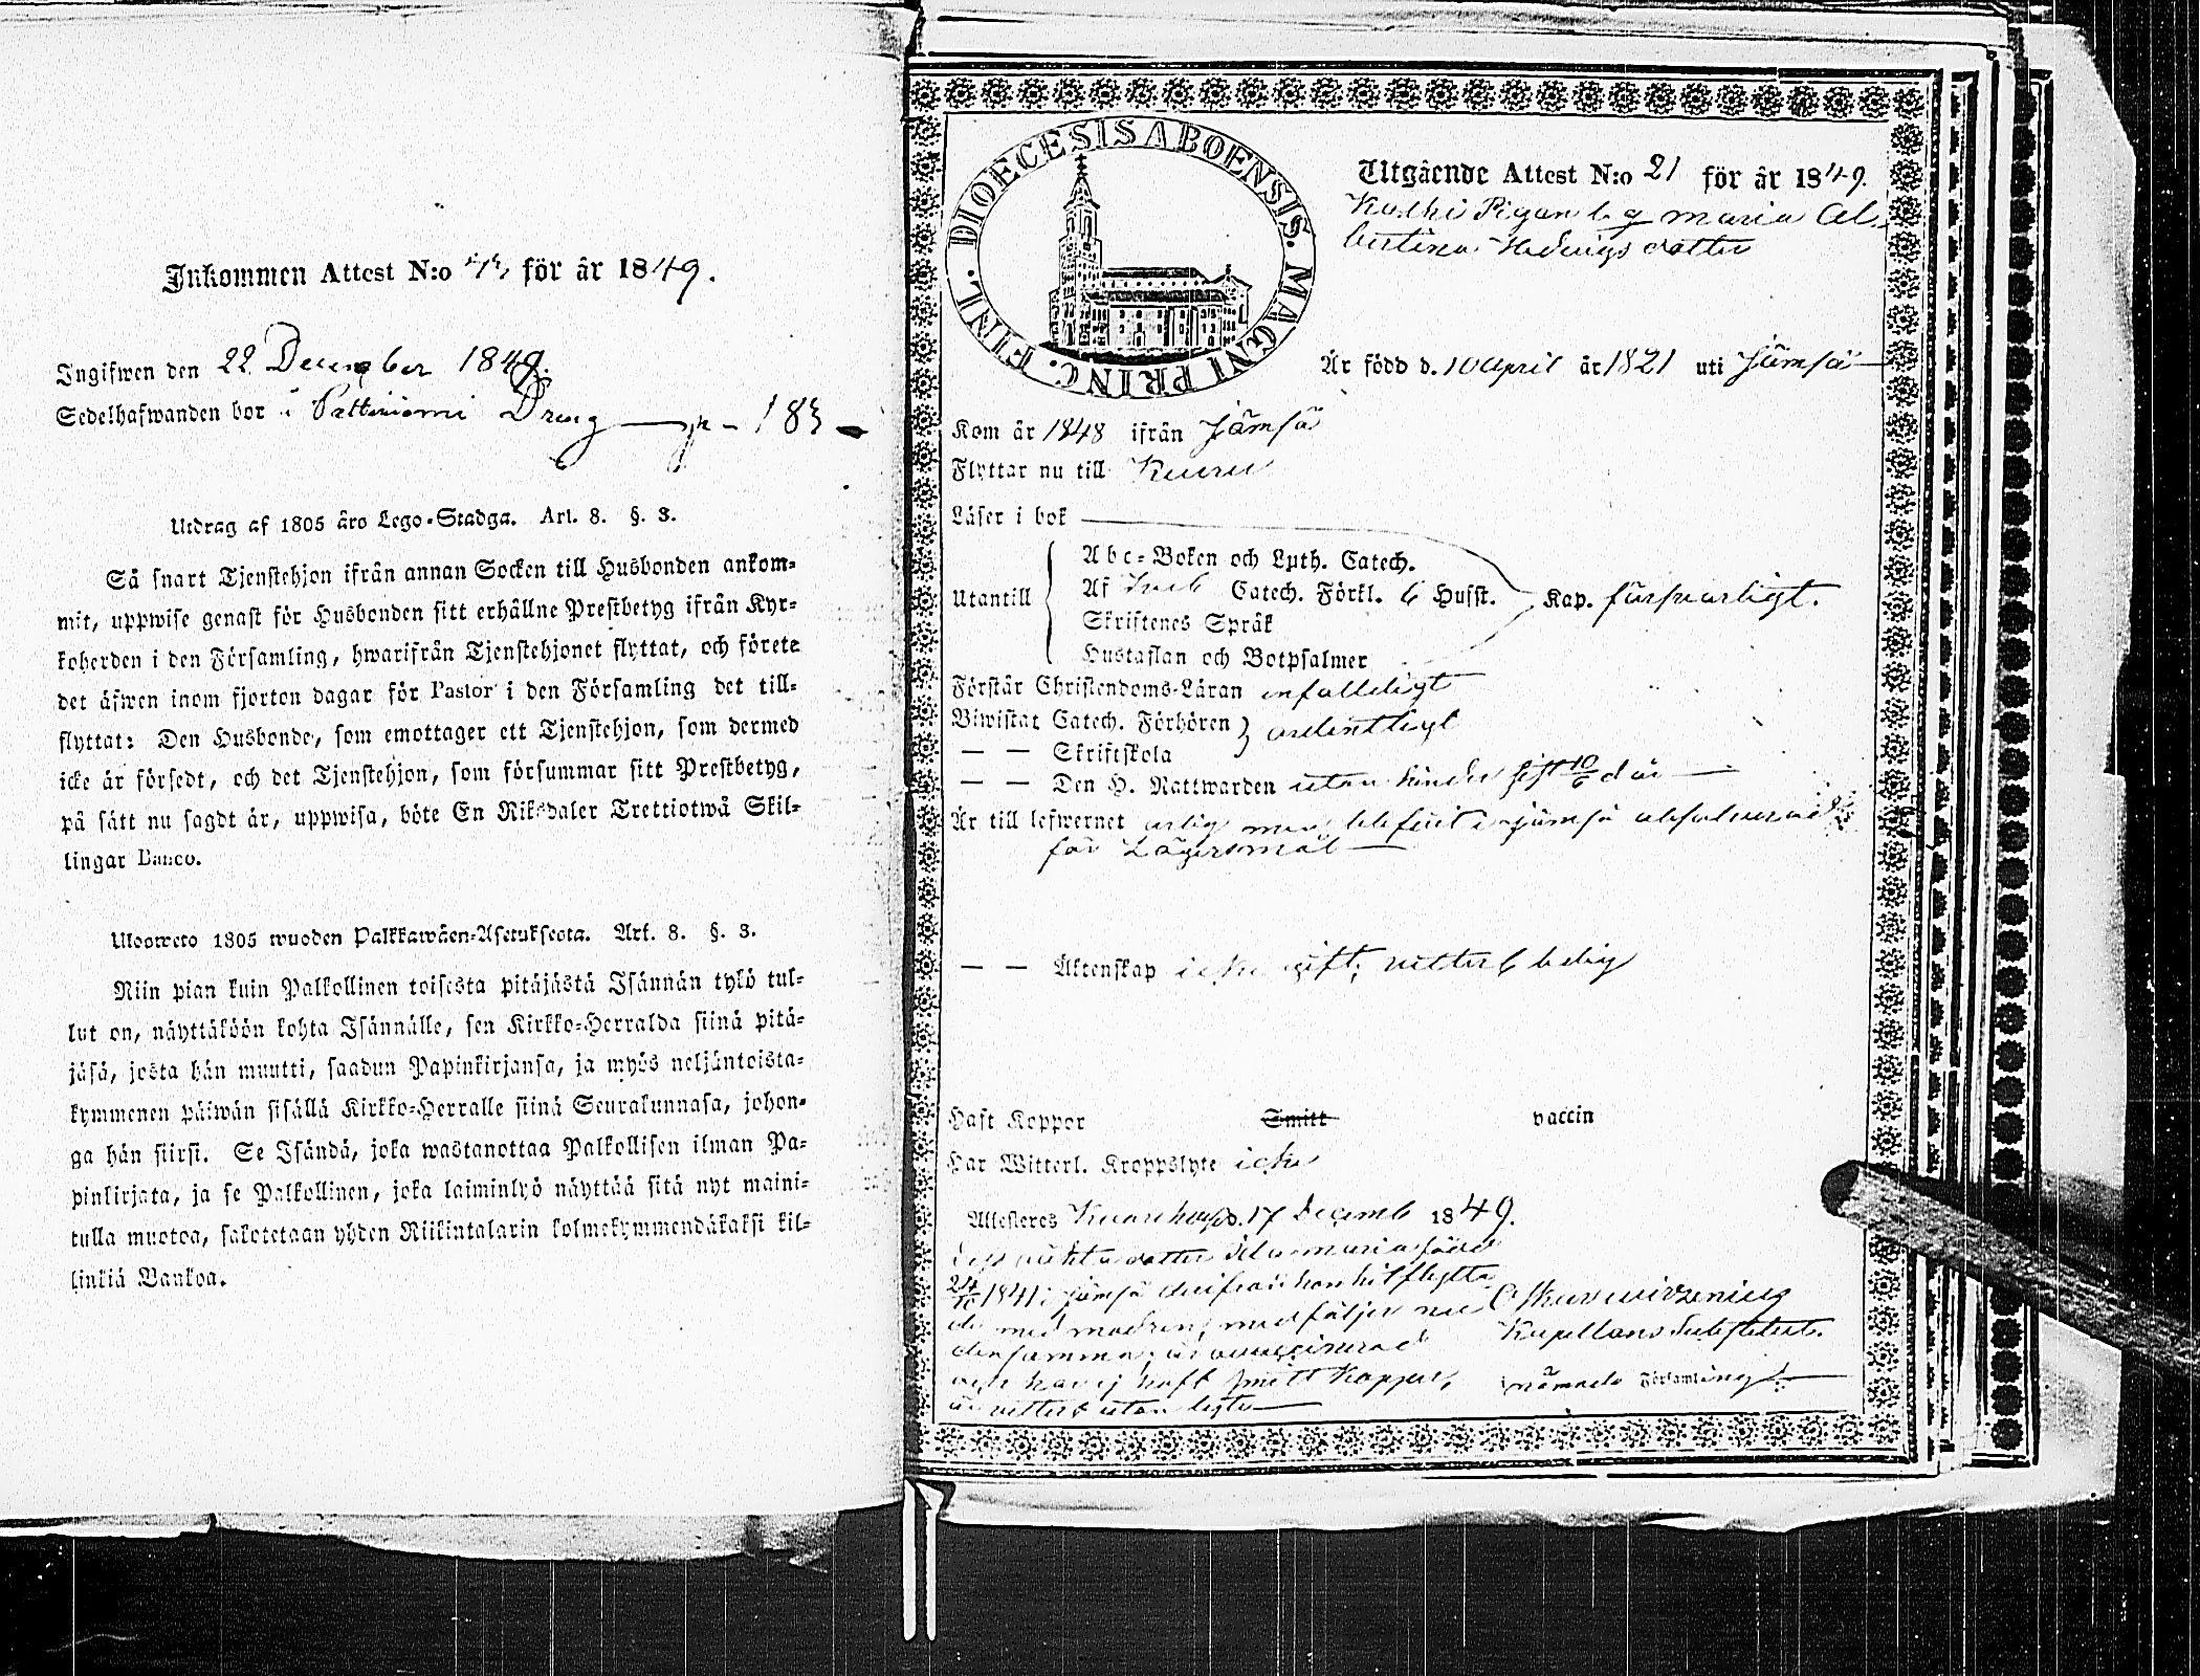 Inkommen Attest N:o för år 1849.
Ingifwen den 22 December 1849.
Sedelhafwanden bor i Pattiniemi Dreng p - 183
Utdrag af 1805 års Lego-Stadga. Art. 8. §. 3.
Så snart Tjenstehjon ifrån annan Socken till Husbonden ankom-
mit, uppwise genast för Husbonden sitt erhållne Prestbetyg ifrån Kyr-
koherden i den Församling, hwarifrån Tjenstehjonet flyttat, och förete
det äfwen inom fjorton dagar för Pastor i den Församling det till-
flyttat: Den Husbonde, som emottager ett Tjenstehjon, som dermed
icke är försedt, och det Tjenstehjon, som försummar sitt Prestbetyg,
på sätt nu sagdt är, uppwisa, böte En Riksdaler Trettiotwå Skil-
lingar Banco.
Ulosweto 1805 wuoden Palkkawäen-Asetuksesta. Art. 8. §. 3.
Niin pian kuin Palkollinen toisesta pitäjästä Isännän tykö tul-
lut on, näyttäköön kohta Isännälle, sen Kirkko-Herralda siinä pitä-
jäsä, josta hän muutti, saadun Papinkirjansa, ja myös neljäntoista-
kymmenen päiwän sisällä Kirkko-Herralle siinä Seurakunnasa, johon-
ga hän siirsi. Se Isändä, joka wastanottaa Palkollisen ilman Pa-
pinkirjata, ja se Palkollinen, joka laiminlyö näyttää sitä nyt maini-
tulla muotoa, sakotetaan yhden Riikintalarin kolmekymmendäkaksi kil-
linkiä Bankoa.
DIOECESIS ABOENSIS. MAGNI PRINC. FINL.
Utgående Attest N:o 21 för år 1849.
Pigan Maria Al-
bertina Hedvigsdotter
Är född d. 10 April år 1821 uti Jämsä
Kom år 1848 ifrån Jämsä
Flyttar nu till Kuru
Läser i bok
Abc-Boken och Luth. Catech.
Utantill Af Catech. Förkl. 6 Husst. Kap. försvarligt.
Skriftenes Språk
Hustaflan och Botpsalmer
Förstår Christendoms-Läran enfaldeligt
Biwistat Catech. Förhören ordentligt
— — Skriftskola
— — Den H. Nattwarden utan hinder sist 10/6 d. år
Är till lefwernet ärlig men blifvit i Jämsä absolverad
för Lägersmål
— — Äktenskap icke gift; vitterl. ledig
Haft Koppor Smitt vaccin
Har Witterl. Kroppslyte icke
Attesteras d. 17 Decemb 1849.
dotter maria född
24/10 1841 i Jämsä derifrån hon hitflytta-
de med modren, medföljer nu
densamma; är vaccinerad
men har ej haft smitt Koppor,
är vitterl utan lyte
Kapellans Substitut.
nämnde Församling